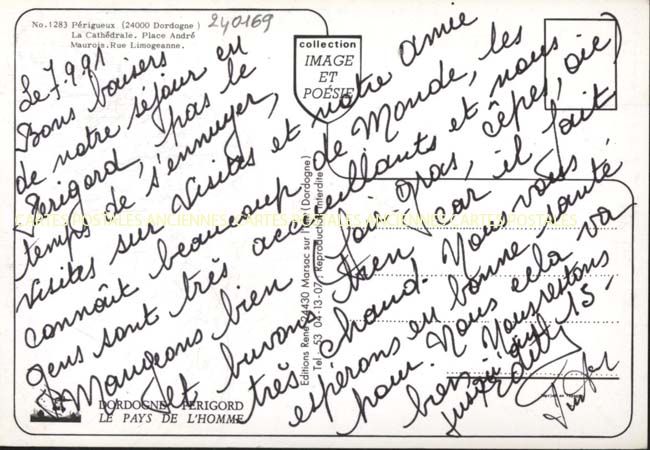 No.1283 Périgueux (24000 Dordogne)
La Cathédrale. Place André
Maurois.Rue Limogeanne.
240169
collection
IMAGE
ET
POÉSIE
Le 7 9 91
Bons baisers
de notre séjour en
Périgord, pas le
temps de s'ennuyer,
visites sur visites et notre amie
connaît beaucoup de Monde, les
gens sont très accueillants et nous
Mangeons bien (foie gras, cêpes, oie)
et buvons bien, car il fait
très chaud. Nous vous
espérons en bonne santé
pour Nous cela va
bien. Nous restons
jusqu'au 15-
CARTES POSTALES ANCIENNES CARTES POSTALES ANCIENNES CARTES POSTALES
Editions René 24430 Marsac sur l'Isle (Dordogne)
Tel 53 04-13-07. Reproduction Interdite
DORDOGNE PÉRIGORD
LE PAYS DE L'HOMME